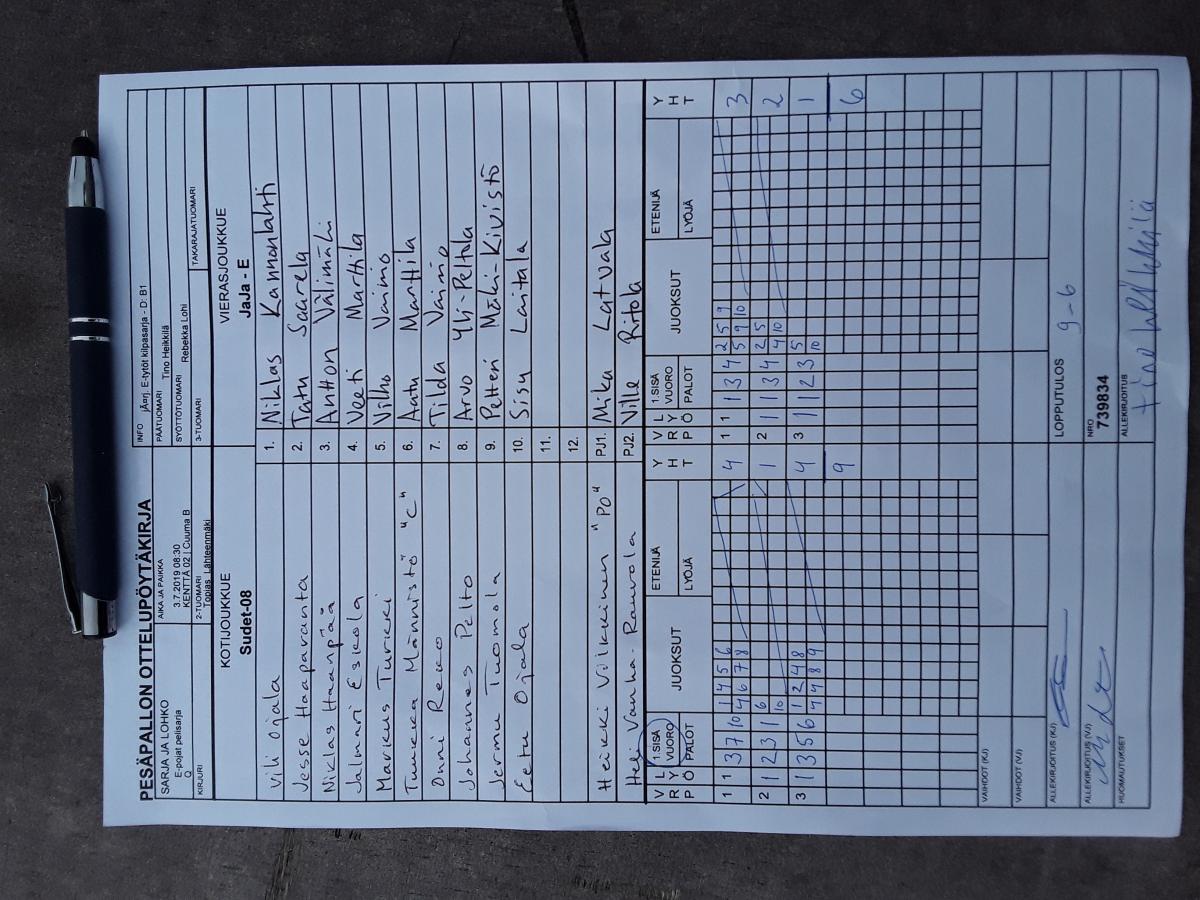 PESÄPALLON OTTELUPÖYTÄKIRJA
SARJA JA LOHKO
E-pojat pelisarja
Q
KIRJURI
AIKA JA PAIKKA
3.7.2019 08:30
KENTTÄ 02 | Cuuma B
2-TUOMARI
Topias Lähteenmäki
INFO jÃ¤rj. E-tytöt kilpasarja - D: B1
PÄÄTUOMARI Tino Heikkilä
SYÖTTÖTUOMARI Rebekka Lohi
3-TUOMARI TAKARAJATUOMARI
KOTIJOUKKUE
Sudet-08
VIERASJOUKKUE
JaJa - E
Vili Ojala 1. Niklas Kannanlahti
Jesse Haaparanta 2. Tatu Saarela
Niklas Haanpää 3. Antton Välimäki
Jalmari Eskola 4. Veeti Marttila
Markus Turkki 5. Vilho Vainio
Tuukka Männistö "C" 6. Anttu Marttila
Onni Rekko 7. Tilda Vainio
Johannes Pelto 8. Arvo Yli-Peltola
Jermu Tuomola 9. Petteri Mäki-Kivistö
Eetu Ojala 10. Sisu Laitala
11.
12.
Heikki Vilkkinen "PO" PJ1. Mika Latvala
Heli Vanha-Rauvola PJ2. Ville Ritola
V R P L Y Ö 1.SISÄ VUORO PALOT JUOKSUT ETENIJÄ LYÖJÄ Y H T V R P L Y Ö 1.SISÄ VUORO PALOT JUOKSUT ETENIJÄ LYÖJÄ Y H T
1 1 3 7 10 1 4 5 6 4 1 1 1 3 4 2 5 9 3
4 6 7 8 5 9 10
2 1 2 3 1 6 1 2 1 1 3 4 2 5 2
10 4 10
3 1 3 5 6 1 2 4 8 4 3 1 1 2 3 5 1
4 4 8 9 10
9 6
VAIHDOT (KJ)
VAIHDOT (VJ)
ALLEKIRJOITUS (KJ) LOPPUTULOS 9-6
ALLEKIRJOITUS (VJ) NRO
739834
HUOMAUTUKSET ALLEKIRJOITUS